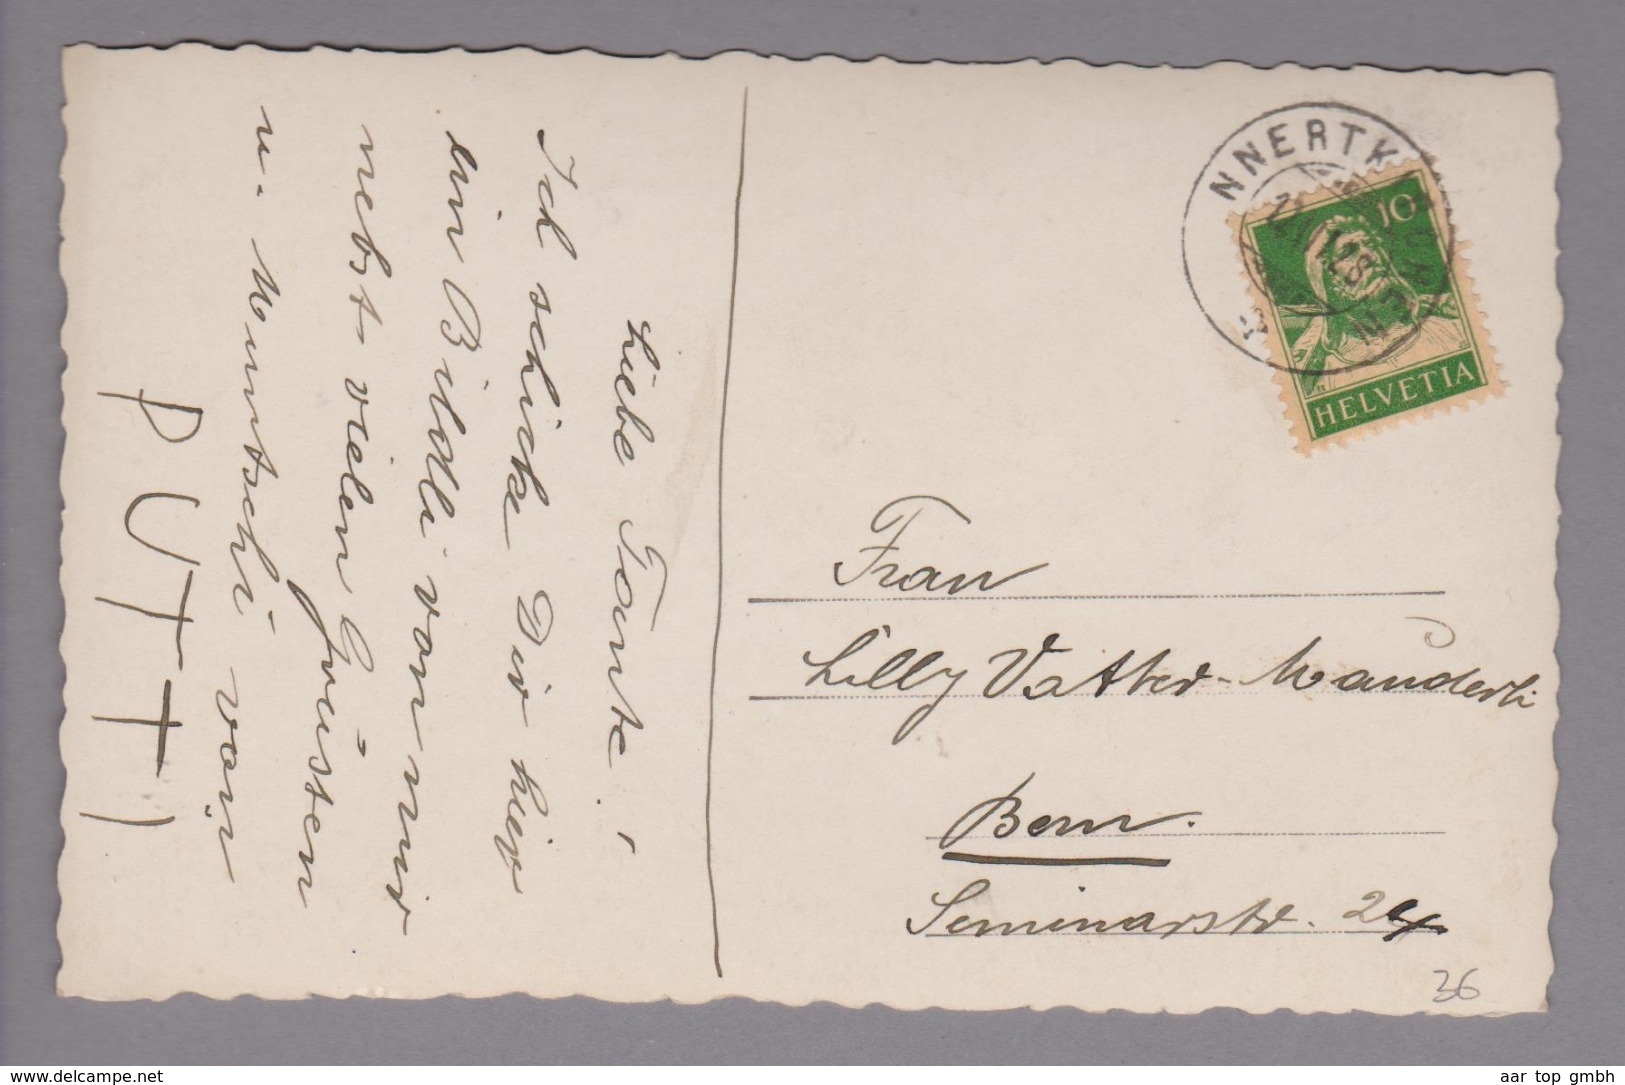 Liebe Tante!
Ich schicke Dir hier
ein Bildli von mir
nebst vielen Grüssen
u. Muntschi von
PUTTI
NNERTK
10
HELVETIA
Frau
Lilly Vatter-Manderli
Bern.
Seminarstr. 24.
36
www.delcampe.net
aar top gmbh